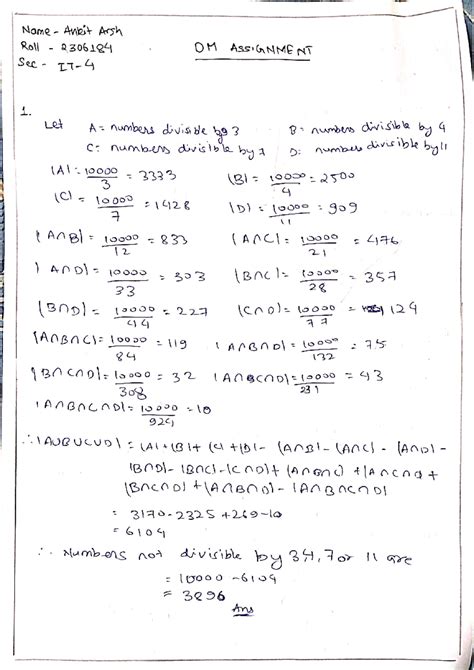 Name - Ankit Arsh
Roll - 2306184
Sec - IT-4
DM ASSIGNMENT
1.
Let A = numbers divisible by 3 B = numbers divisible by 4
C = numbers divisible by 7 D = numbers divisible by 11
|A| = 10000/3 = 3333 |B| = 10000/4 = 2500
|C| = 10000/7 = 1428 |D| = 10000/11 = 909
|A∩B| = 10000/12 = 833 |A∩C| = 10000/21 = 476
|A∩D| = 10000/33 = 303 |B∩C| = 10000/28 = 357
|B∩D| = 10000/44 = 227 |C∩D| = 10000/77 = 124
|A∩B∩C| = 10000/84 = 119 |A∩B∩D| = 10000/132 = 75
|B∩C∩D| = 10000/308 = 32 |A∩B∩C∩D| = 10000/231 = 43
|A∩B∩C∩D| = 10000/924 = 10
∴ |A∪B∪C∪D| = |A| + |B| + |C| + |D| - |A∩B| - |A∩C| - |A∩D| -
|B∩D| - |B∩C| - |C∩D| + |A∩B∩C| + |A∩C∩D| +
|B∩C∩D| + |A∩B∩D| - |A∩B∩C∩D|
= 3170 - 2325 + 269 - 10
= 6104
∴ Numbers not divisible by 3,4,7 or 11 are
= 10000 - 6104
= 3896
Ans